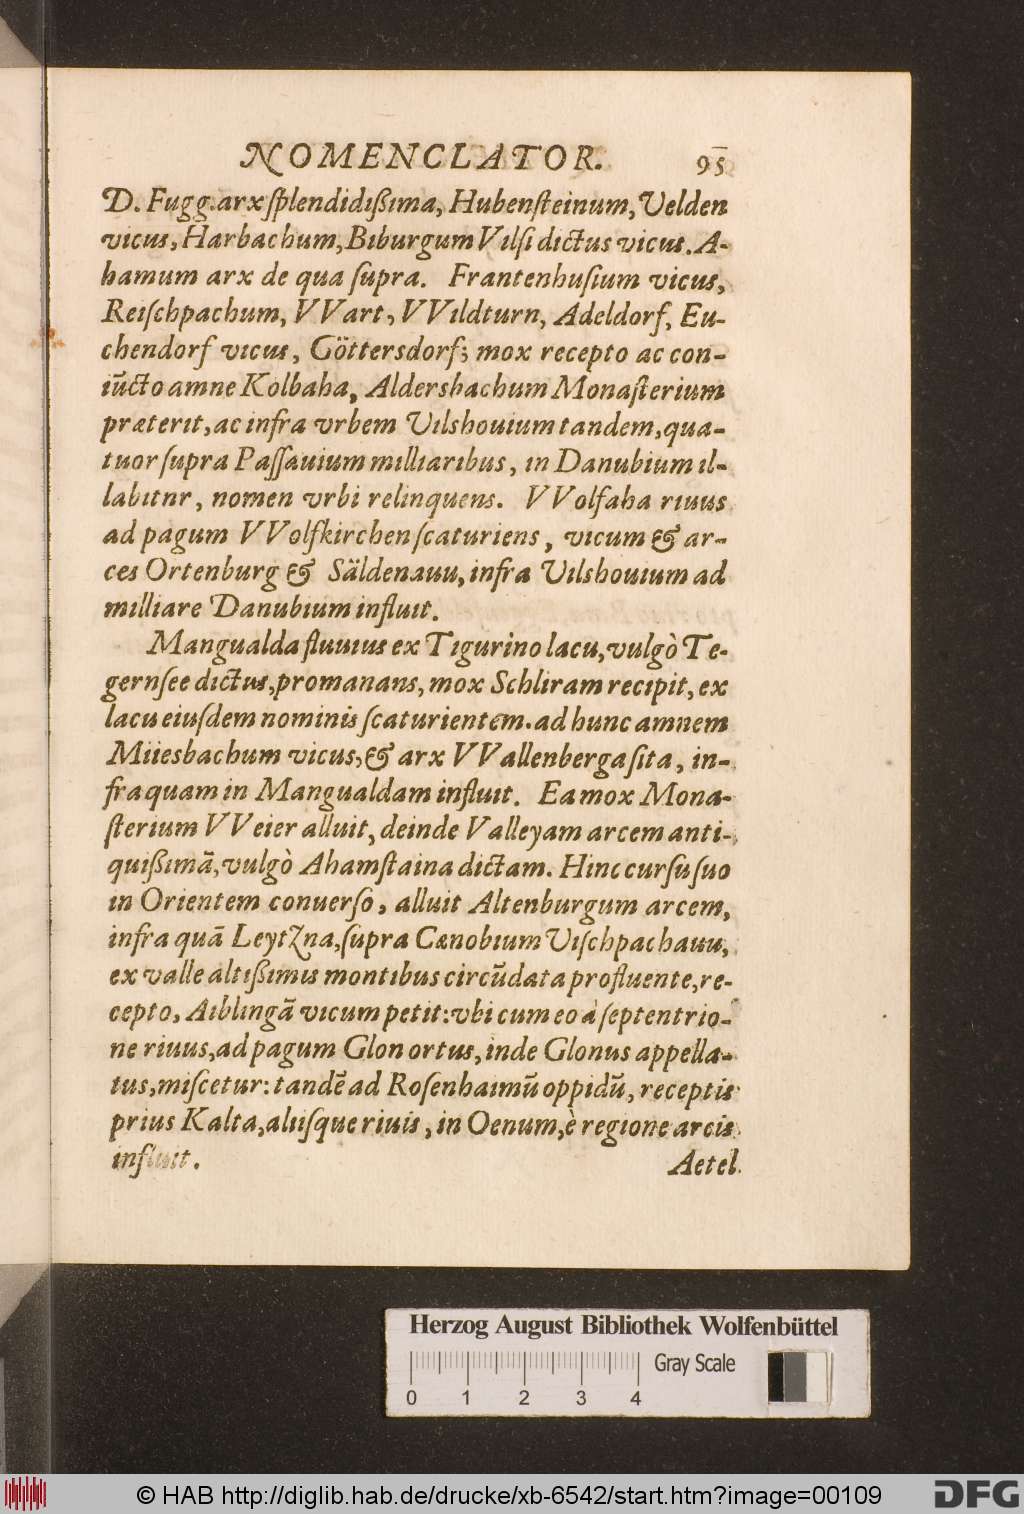 NOMENCLATOR. 95
D. Fugg. arx ſplendidißima, Hubenſteinum, Velden
vicus, Harbachum, Biburgum Vilſi dictus vicus. A-
hamum arx de qua ſupra. Frantenhuſium vicus,
Reiſchpachum, VVart, VVildturn, Adeldorf, Eu-
chendorf vicus, Göttersdorf; mox recepto ac con-
iũcto amne Kolbaha, Aldersbachum Monaſterium
præterit, ac infra vrbem Vilshouium tandem, qua-
tuor ſupra Paſſauium milliaribus, in Danubium il-
labitnr, nomen vrbi relinquens. VVolfaha riuus
ad pagum VVolfkirchen ſcaturiens, vicum & ar-
ces Ortenburg & Säldenauu, infra Vilshouium ad
milliare Danubium influit.
Mangualda fluuius ex Tigurino lacu, vulgò Te-
gernſee dictus, promanans, mox Schliram recipit, ex
lacu eiuſdem nominis ſcaturientem. ad hunc amnem
Miiesbachum vicus, & arx VVallenberga ſita, in-
fra quam in Mangualdam influit. Ea mox Mona-
ſterium VVeier alluit, deinde Valleyam arcem anti-
quißimã, vulgò Ahamſtaina dictam. Hinc curſu ſuo
in Orientem conuerſo, alluit Altenburgum arcem,
infra quã Leytzna, ſupra Cænobium Viſchpachauu,
ex valle altißimis montibus circũdata profluente, re-
cepto, Aiblingã vicum petit: vbi cum eo à ſeptentrio-
ne riuus, ad pagum Glon ortus, inde Glonus appella-
tus, miſcetur: tandẽ ad Roſenhaimũ oppidũ, receptis
prius Kalta, aliiſque riuis, in Oenum, è regione arcis
influit. Aetel
Herzog August Bibliothek Wolfenbüttel
Gray Scale
0 1 2 3 4
© HAB http://diglib.hab.de/drucke/xb-6542/start.htm?image=00109
DFG